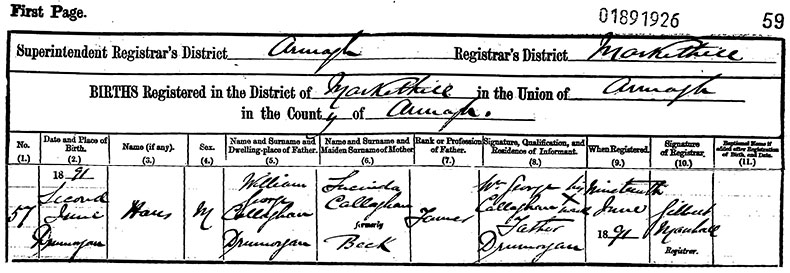 First Page.
01891926
59
Superintendent Registrar's District Armagh Registrar's District Markethill
BIRTHS Registered in the District of Markethill in the Union of Armagh
in the County of Armagh.
No. (1.)
Date and Place of Birth. (2.)
Name (if any). (3.)
Sex. (4.)
Name and Surname and Dwelling-place of Father. (5.)
Name and Surname and Maiden Surname of Mother (6.)
Rank or Profession of Father. (7.)
Signature, Qualification, and Residence of Informant. (8.)
When Registered. (9.)
Signature of Registrar. (10.)
Baptismal Name if added after Registration of Birth, and Date. (11.)
57
1891
Second
June
Drumorgan
Hans
M
William
George
Callaghan
Drumorgan
Lucinda
Callaghan
formerly
Beck
Farmer
Wm George by
Callaghan X mark
Father
Drumorgan
Nineteenth
June
1891
Gilbert
Marshall
Registrar.